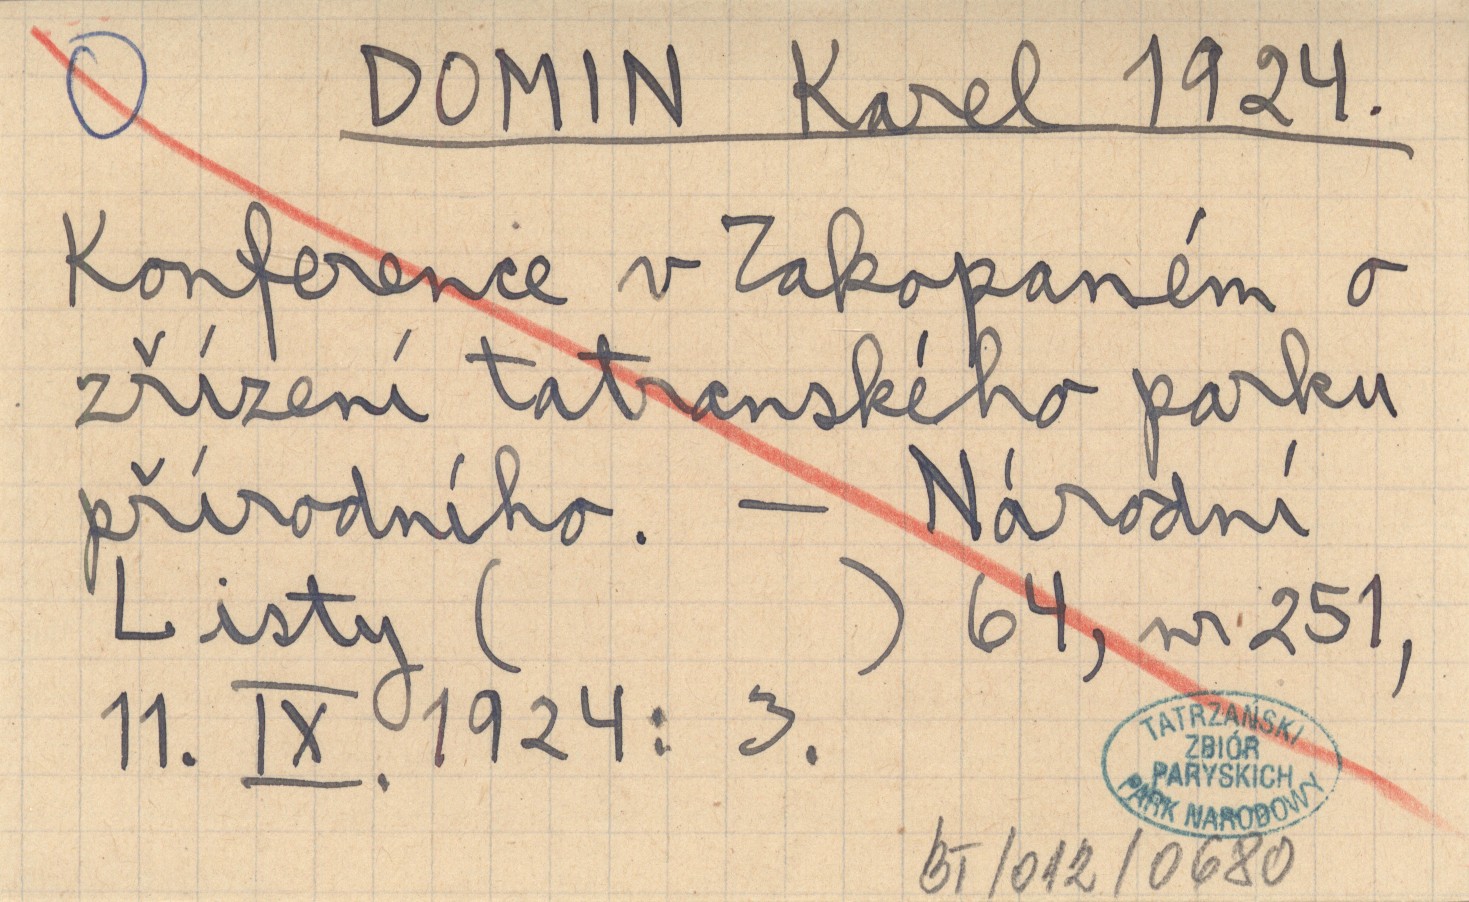 DOMIN Karel 1924.
Konference v Zakopaném o
zřízení tatranského parku
přírodního. — Národní
Listy ( ) 64, nr 251,
11. IX. 1924: 3.
TATRZAŃSKI
ZBIÓR
PARYSKICH
PARK NARODOWY
BT/012/0680